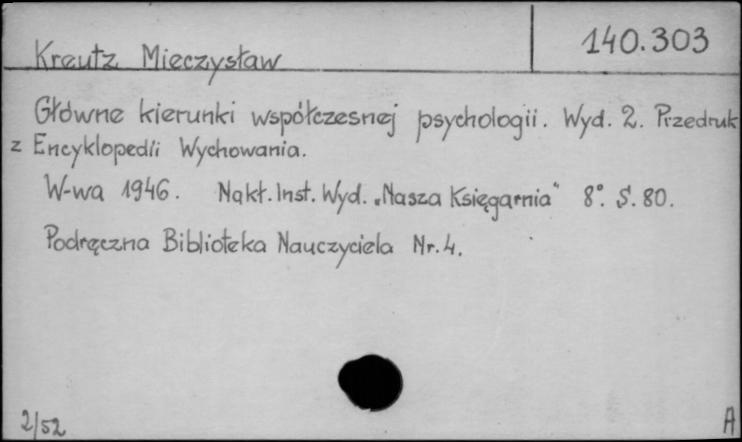 140.303
Kreutz Mieczysław
Główne kierunki współczesnej psychologii. Wyd. 2. Przedruk
z Encyklopedii Wychowania.
W-wa 1946. Nakł. Inst. Wyd. „Nasza Księgarnia" 8°. S. 80.
Podręczna Biblioteka Nauczyciela Nr. 4.
2/52
A